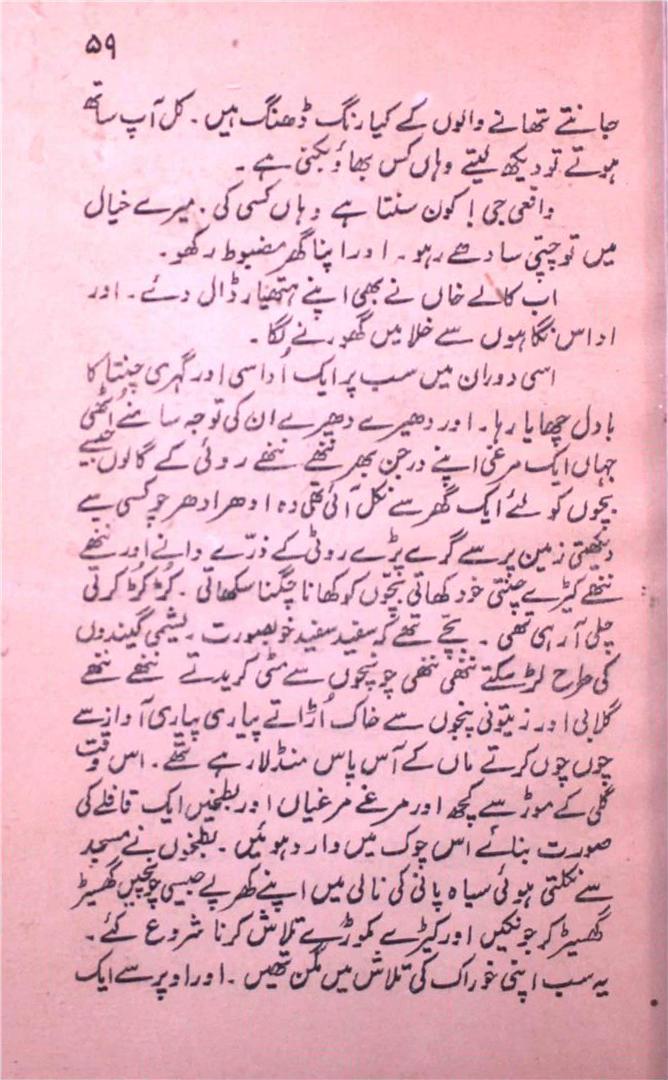 ۵۹
جانتے تھانے والوں کے کیا رنگ ڈھنگ ہیں۔ کل آپ ساتھ
ہوتے تو دیکھ لیتے وہاں کس بھاؤ بکتی ہے۔
واقعی جی! کون سنتا ہے وہاں کسی کی۔ میرے خیال
میں تو چپتی سادھے رہو۔ اور اپنا گھر مضبوط رکھو۔
اب کالے خاں نے بھی اپنے ہتھیار ڈال دئے۔ اور
اداس نگاہوں سے خلا میں گھورنے لگا۔
اسی دوران میں سب پر ایک اُداسی اور گہری چنتا کا
بادل چھایا رہا۔ اور دھیرے دھیرے ان کی توجہ سامنے اُٹھی
جہاں ایک مرغی اپنے درجن بھر ننھے ننھے روئی کے گالوں جیسے
بچوں کو لئے ایک گھر سے نکل آئی تھی وہ ادھر ادھر چوکسی سے
دیکھتی زمین پر سے گرے پڑے روٹی کے ذرّے دانے اور ننھے
ننھے کیڑے چنتی خود کھاتی بچّوں کو کھانا چگنا سکھاتی۔ کُڑ کُڑ کرتی
چلی آ رہی تھی۔ بچّے تھے کہ سفید سفید خوبصورت ریشمی گیندوں
کی طرح لڑھکتے ننھی ننھی چونچوں سے مٹی کریدتے ننھے ننھے
گلابی اور زیتونی پنجوں سے خاک اُڑاتے پیاری پیاری آواز سے
چوں چوں کرتے ماں کے آس پاس منڈلا رہے تھے۔ اس وقت
گلی کے موڑ سے کچھ اور مرغے مرغیاں اور بطخیں ایک قافلے کی
صورت بنائے اس چوک میں وارد ہوئیں۔ بطخوں نے مسجد
سے نکلتی ہوئی سیاہ پانی کی نالی میں اپنے کھرپے جیسی چونچیں گھسیڑ
گھسیڑ کر جونکیں اور کیڑے مکوڑے تلاش کرنا شروع کئے۔
یہ سب اپنی خوراک کی تلاش میں مگن تھیں۔ اور اوپر سے ایک